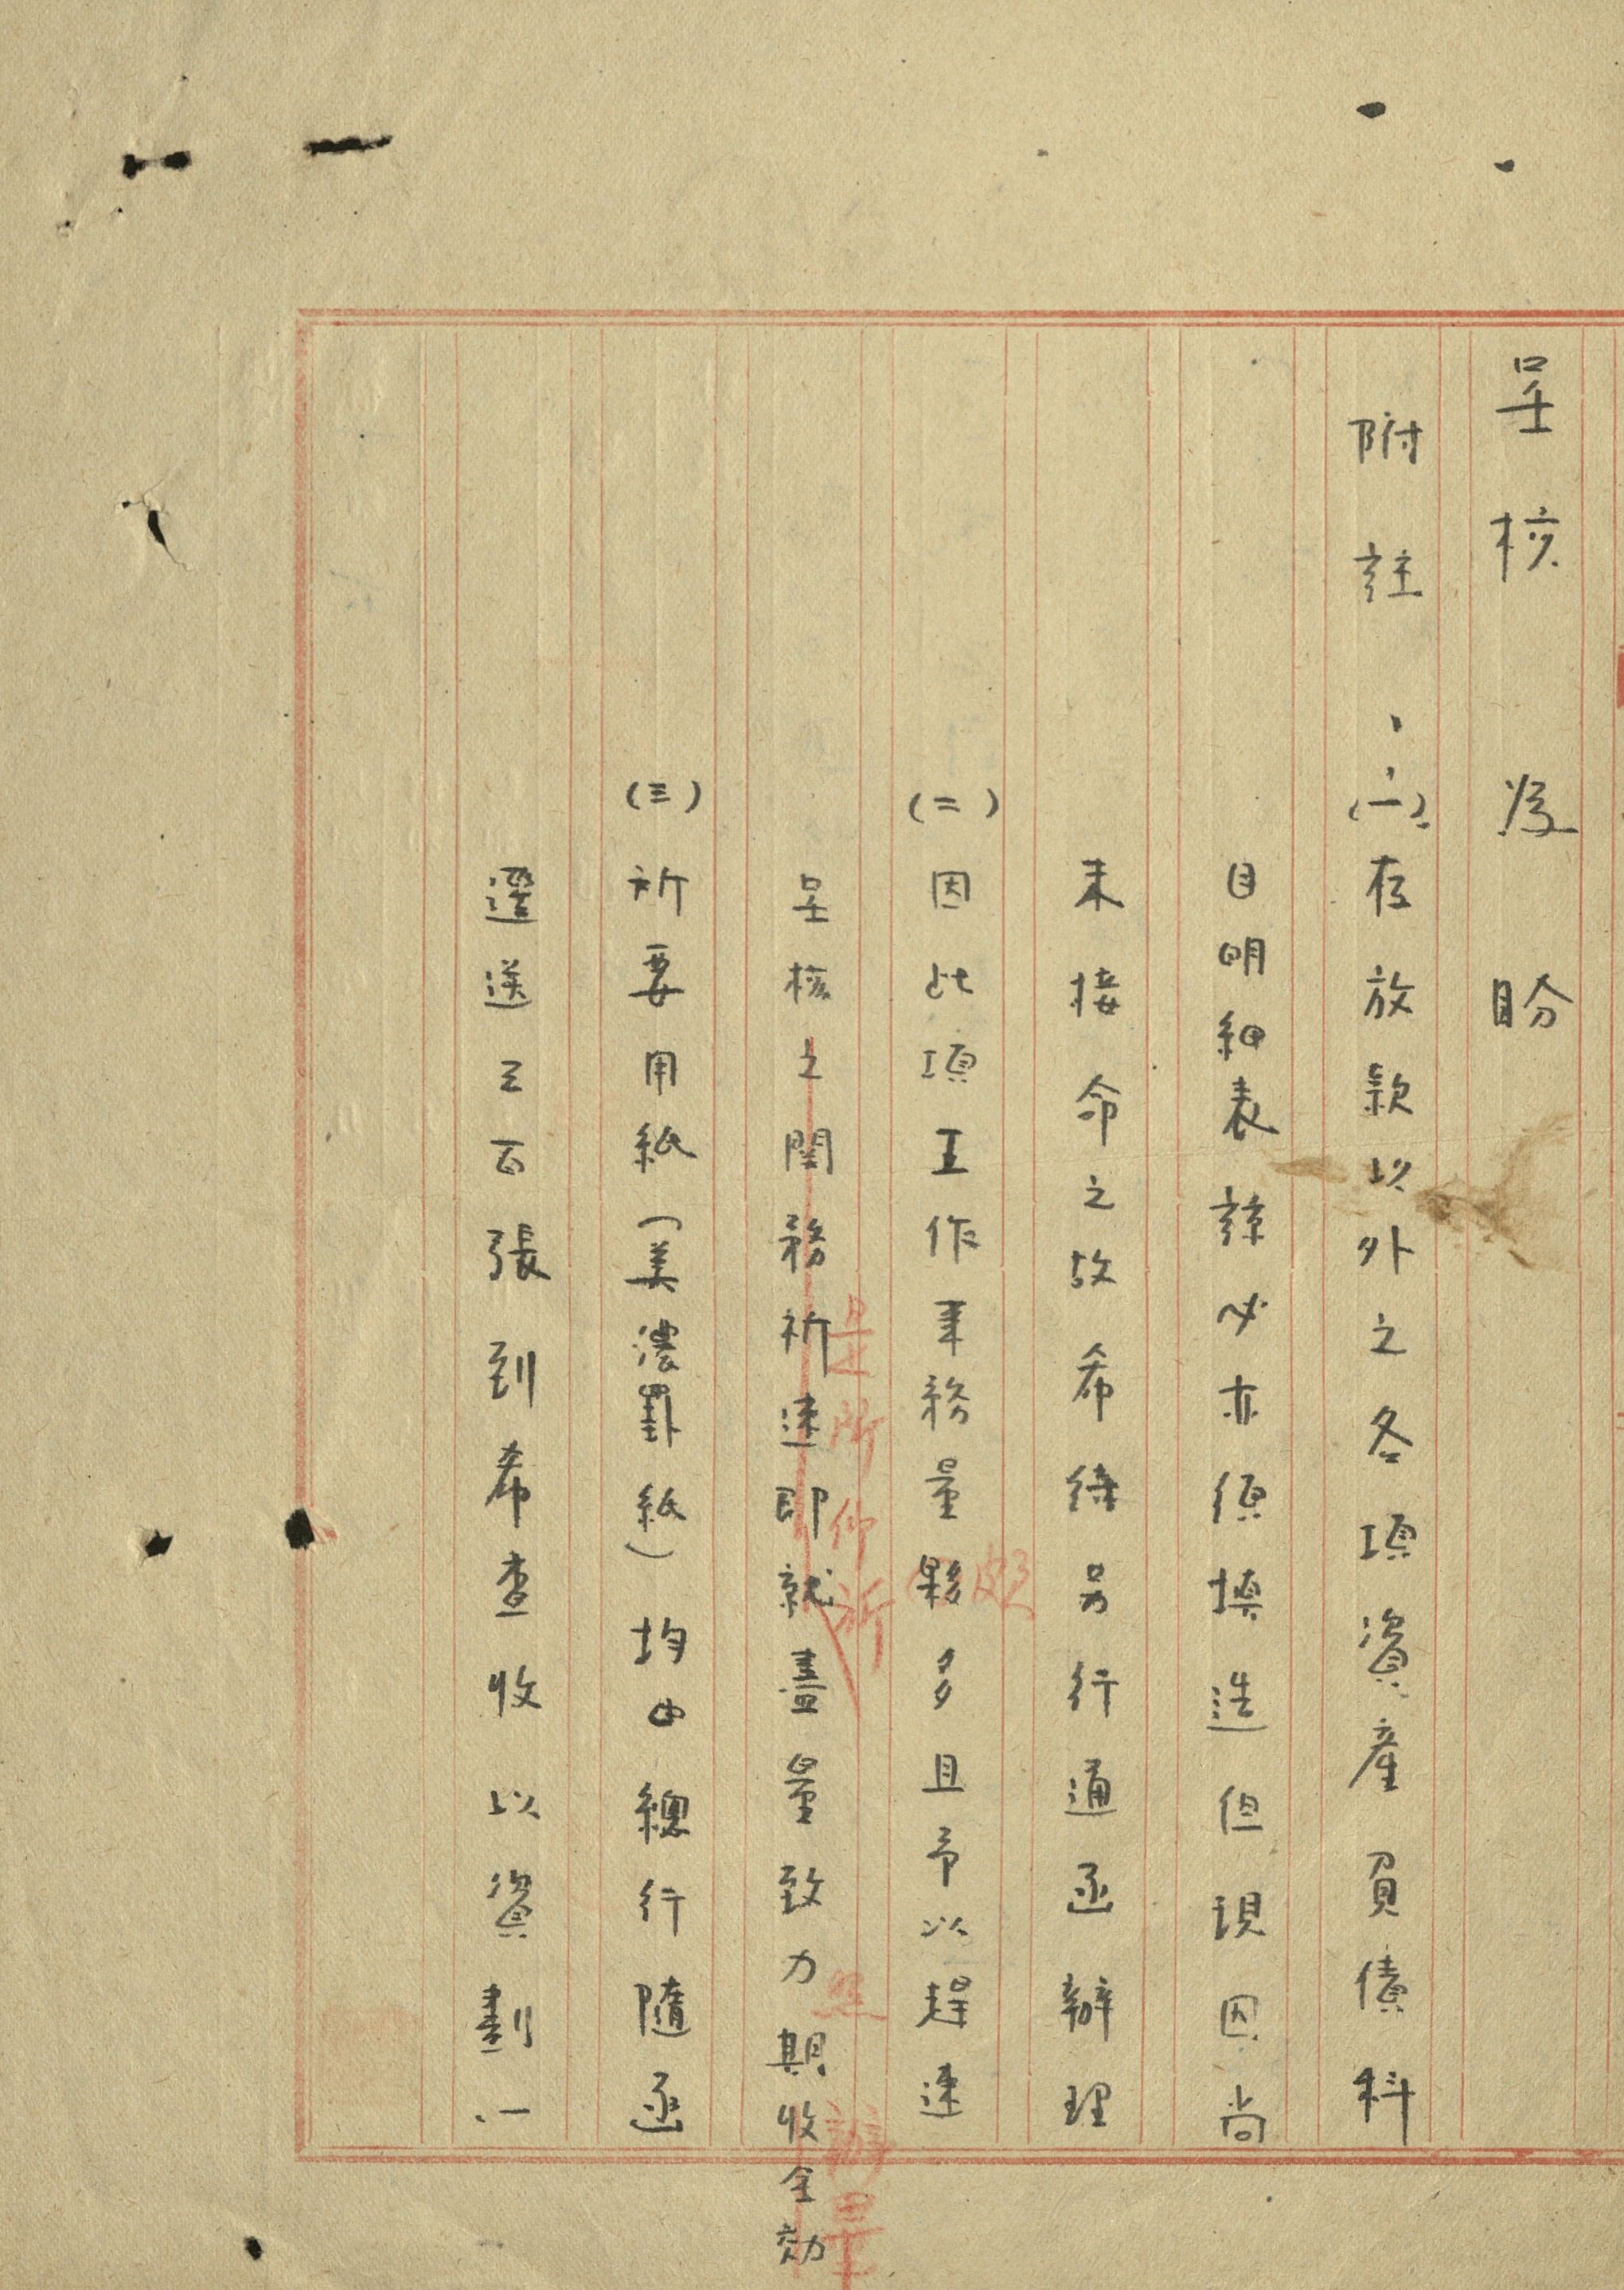 呈核為盼
附註：(一)存放款以外之各項資產負債科
目明細表諒必亦須填造但現因尚
未接命之故希待另行通函辦理
(二)因此項工作事務量夥多且予以趕速
呈核之關務祈速即就盡量致力期收全効
是所仰祈
照辦
(三)所要用紙(美濃罫紙)均由總行隨函
選送三百張到希查收以資劃一